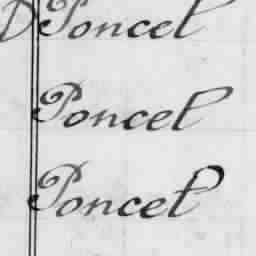 D Poncel
Poncel
Poncel